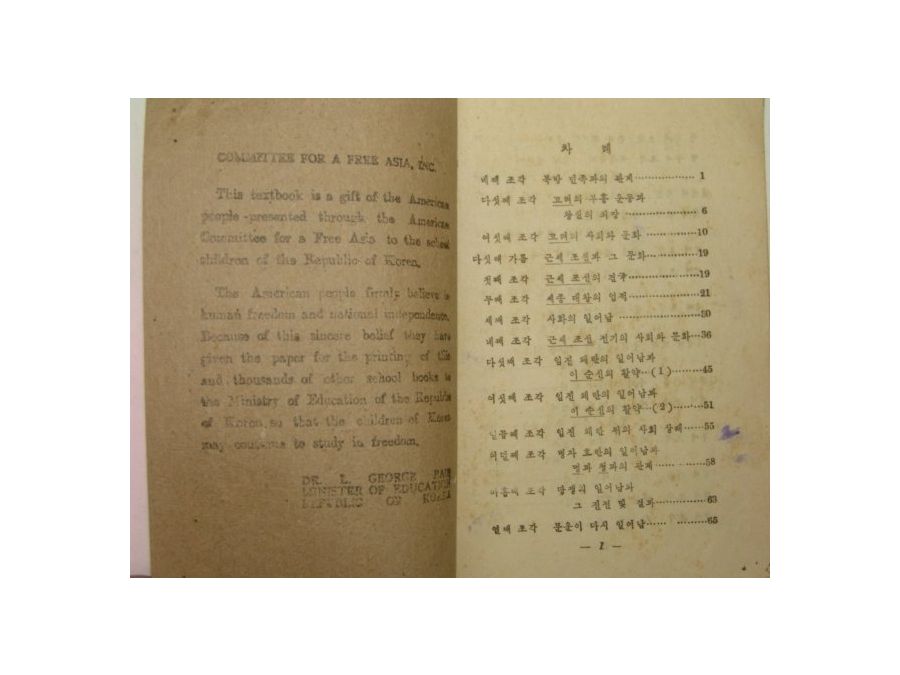 COMMITTEE FOR A FREE ASIA, INC.
This textbook is a gift of the American
people presented through the American
Committee for a Free Asia to the school
children of the Republic of Korea.
The American people firmly believe in
human freedom and national independence.
Because of this sincere belief they have
given the paper for the printing of this
and thousands of other school books to
the Ministry of Education of the Republic
of Korea, so that the children of Korea
may continue to study in freedom.
DR. L. GEORGE PAIK
MINISTER OF EDUCATION
REPUBLIC OF KOREA
차 례
네째 조각 북방 민족과의 관계 ⋯⋯ 1
다섯째 조각 고려의 부흥 운동과
왕실의 ⋯⋯ 6
여섯째 조각 고려의 사회와 문화 ⋯⋯ 10
다섯째 가름 근세 조선과 그 문화 ⋯⋯ 19
첫째 조각 근세 조선의 건국 ⋯⋯ 19
두째 조각 세종 대왕의 업적 ⋯⋯ 21
세째 조각 사화의 일어남 ⋯⋯ 30
네째 조각 근세 조선 전기의 사회와 문화 ⋯ 36
다섯째 조각 임진 왜란의 일어남과
이 순신의 활약 ⋯ (1) ⋯⋯ 45
여섯째 조각 임진 왜란의 일어남과
이 순신의 활약 ⋯ (2) ⋯⋯ 51
일곱째 조각 임진 왜란 뒤의 사회 상태 ⋯⋯ 55
여덟째 조각 병자 호란의 일어남과
명과 청과의 관계 ⋯⋯ 58
아홉째 조각 당쟁의 일어남과
그 진전 및 결과 ⋯⋯ 63
열째 조각 문운이 다시 일어남 ⋯⋯ 65
— 1 —